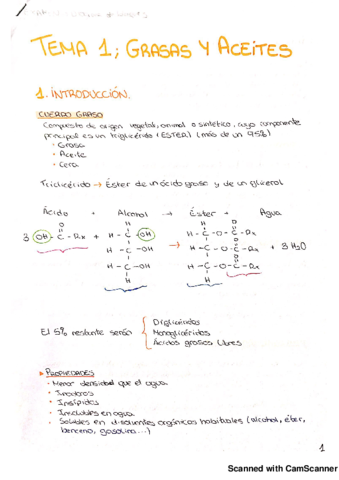 TEMA 1; GRASAS Y ACEITES
1. INTRODUCCIÓN.
CUERPO GRASO
Compuesto de origen vegetal, animal o sintético, cuyo componente
principal es un triglicérido (ESTER) (más de un 95%)
· Grasa
· Aceite
· Cera
Triglicérido → Éster de un ácido graso y de un glicerol
Ácido + Alcohol → Éster + Agua
O H H O
3 OH - C - Rx + H - C - OH H - C - O - C - Rx
H - C - OH → H - C - O - C - Rx + 3 H2O
H - C - OH H - C - O - C - Rx
H H
El 5% restante serán
Diglicéridos
Monoglicéridos
Ácidos grasos libres
PROPIEDADES
· Menor densidad que el agua
· Inodoros
· Insípidos
· Insolubles en agua.
· Solubles en disolventes orgánicos habituales (alcohol, éter,
benceno, gasolina...)
1
Scanned with CamScanner